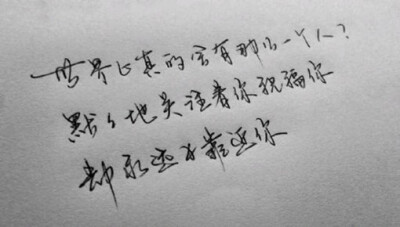 世界上真的会有那么一个人？
默々地关注着你祝福你
却永远不靠近你